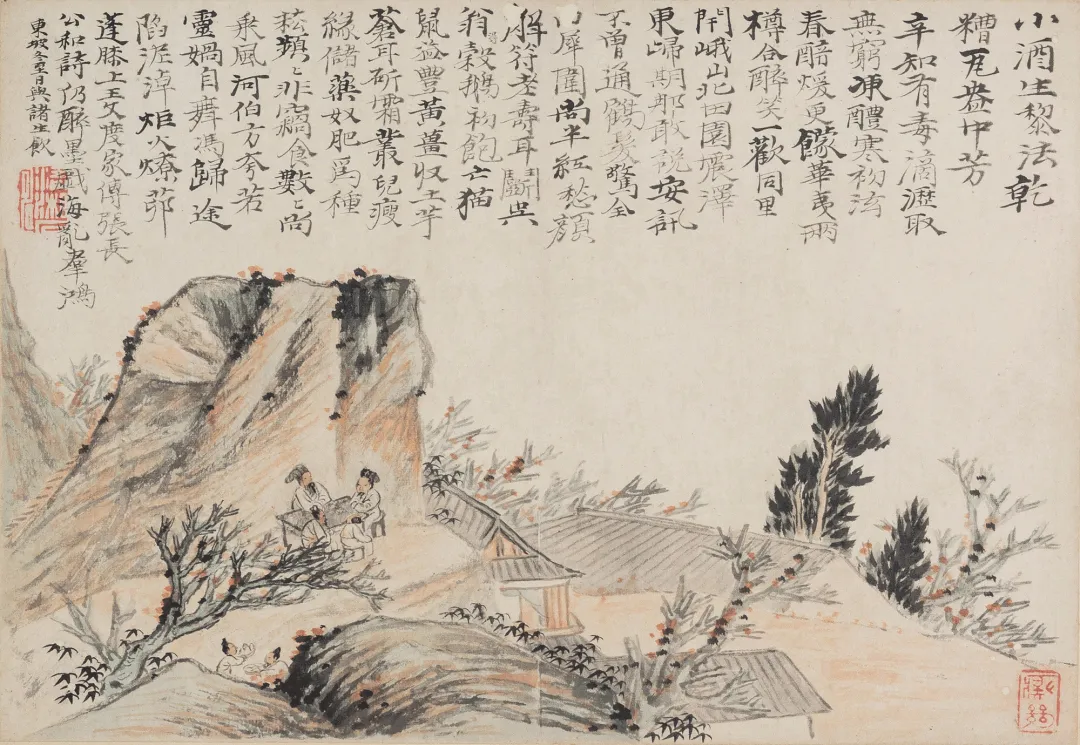 小酒生黎法乾
糟瓦盎中芳
辛知有毒滴瀝取
無窮凍醴寒初泫
春醅煖更饛華夷兩
樽合醉笑一歡同里
閈峨山北田園震澤
東歸期那敢說安訊
不曾通鶴髮驚全
白犀圍尚半紅愁顏
解符老壽耳鬭吳
翁得穀鵝初飽亡猫
鼠益豐黃薑收土芋
蒼耳斫霜叢兒瘦
緣儲藥奴肥爲種
菘頻〻非竊食數〻尚
乘風河伯方夸若
靈媧自舞馮歸途
陷泥淖炬火燎茆
蓬膝上王文度家傳張長
公和詩仍醉墨戲海亂羣鴻
東坡冬至日與諸生飲